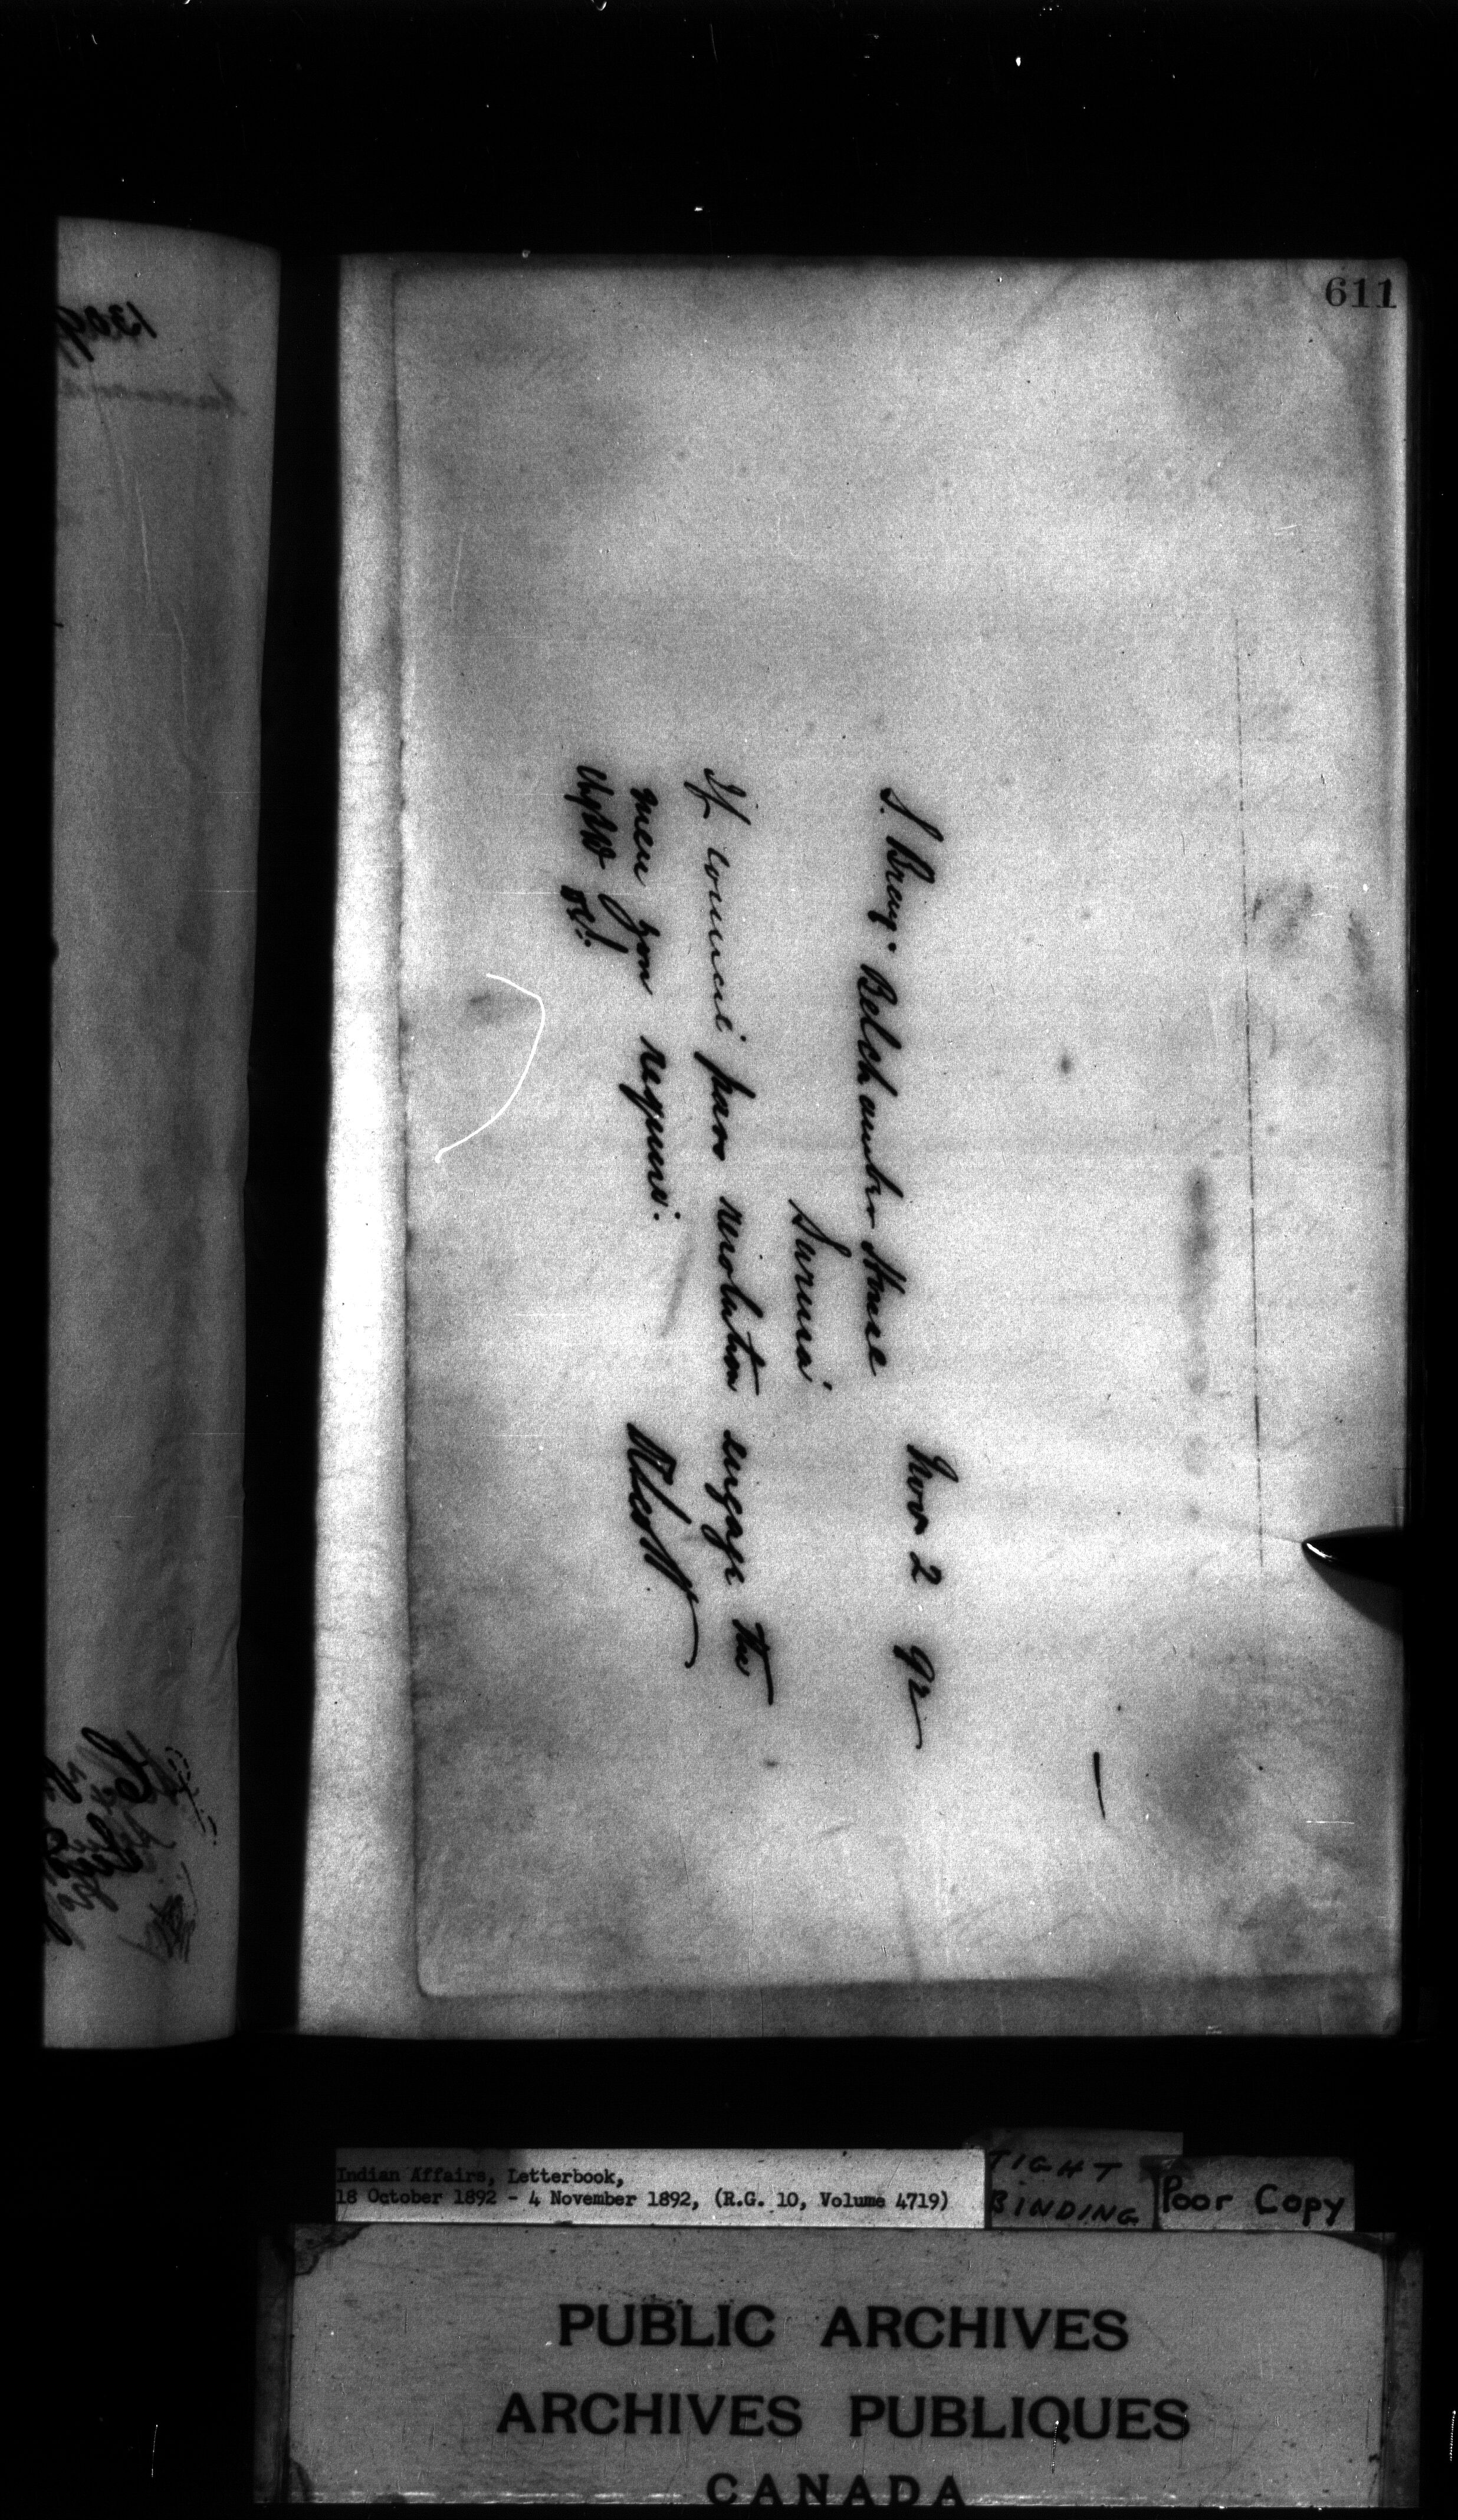 611
Nov 2 92
S. Bray. Belchamber House
Sarnia
If council pass resolution engage the
men you require.
Indian Affairs, Letterbook,
18 October 1892 - 4 November 1892, (R.G. 10, Volume 4719)
TIGHT
BINDING
Poor Copy
PUBLIC ARCHIVES
ARCHIVES PUBLIQUES
CANADA